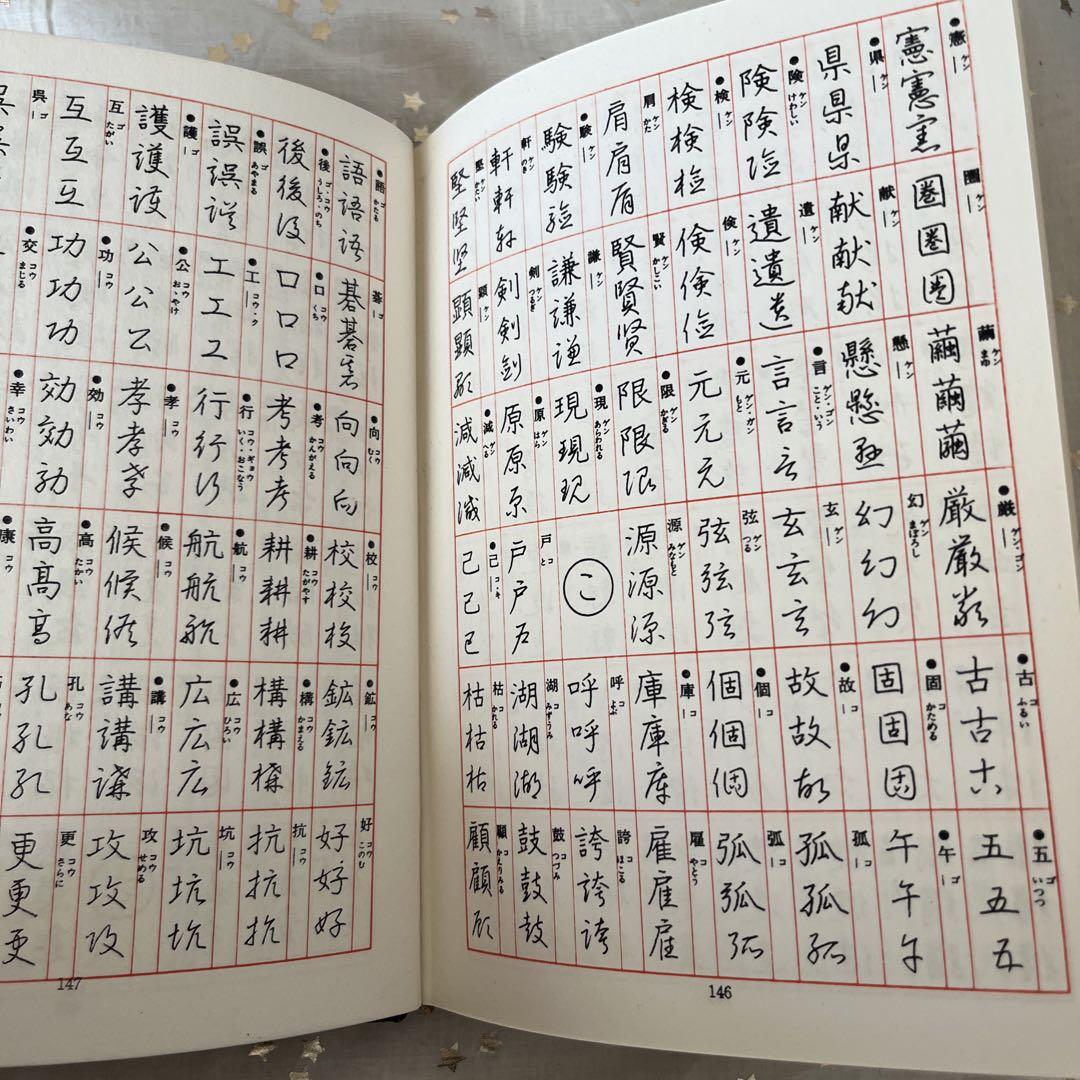 ●憲 ケン ｜
憲憲憲
●県 ケン ｜
県県県
●険 ケン けわしい
険険険
●検 ケン ｜
検検検
肩 ケン かた
肩肩肩
●験 ケン ｜
験験験
軒 ケン のき
軒軒軒
堅 ケン かたい
堅堅堅
圏 ケン ｜
圏圏圏
献 ケン ｜
献献献
遣 ケン ｜
遣遣遣
倹 ケン ｜
倹倹倹
賢 ケン かしこい
賢賢賢
謙 ケン ｜
謙謙謙
剣 ケン つるぎ
剣剣剣
顕 ケン ｜
顕顕顕
繭 ケン まゆ
繭繭繭
懸 ケン ｜
懸懸懸
●言 ゲン・ゴン こと・いう
言言言
●元 ゲン・ガン もと
元元元
●限 ゲン かぎる
限限限
●現 ゲン あらわれる
現現現
●原 ゲン はら
原原原
●減 ゲン へる
減減減
●厳 ゲン・ゴン
厳厳厳
幻 ゲン まぼろし
幻幻幻
玄 ゲン ｜
玄玄玄
弦 ゲン つる
弦弦弦
源 ゲン みなもと
源源源
こ
戸 コ と
戸戸戸
●己 コ・キ ｜
己己己
●古 コ ふるい
古古古
●固 コ かためる
固固固
●故 コ ｜
故故故
●個 コ ｜
個個個
●庫 コ ｜
庫庫庫
呼 コ よぶ
呼呼呼
湖 コ みずうみ
湖湖湖
枯 コ かれる
枯枯枯
●五 ゴ いつつ
五五五
●午 ゴ ｜
午午午
孤 コ ｜
孤孤孤
弧 コ ｜
弧弧弧
雇 コ やとう
雇雇雇
誇 コ ほこる
誇誇誇
鼓 コ つづみ
鼓鼓鼓
顧 コ かえりみる
顧顧顧
146
●語 ゴ かたる
語語語
●後 ゴ・コウ うしろ・のち
後後後
●誤 ゴ あやまる
誤誤誤
●護 ゴ ｜
護護護
互 ゴ たがい
互互互
呉 ゴ ｜
呉呉呉
碁 ゴ ｜
碁碁碁
●口 コウ くち
口口口
●工 コウ・ク
工工工
●公 コウ おゝやけ
公公公
●功 コウ ｜
功功功
●交 コウ まじる
●向 コウ むく
向向向
●考 コウ かんがえる
考考考
●行 コウ・ギョウ いく・おこなう
行行行
●孝 コウ ｜
孝孝孝
●効 コウ ｜
効効効
●幸 コウ さいわい
●校 コウ ｜
校校校
●耕 コウ たがやす
耕耕耕
●航 コウ ｜
航航航
●候 コウ ｜
候候候
●高 コウ たかい
高高高
●康 コウ ｜
●鉱 コウ ｜
鉱鉱鉱
●構 コウ かまえる
構構構
●広 コウ ひろい
広広広
●講 コウ ｜
講講講
孔 コウ あな
孔孔孔
好 コウ このむ
好好好
抗 コウ ｜
抗抗抗
坑 コウ ｜
坑坑坑
攻 コウ せめる
攻攻攻
更 コウ さらに
更更更
147